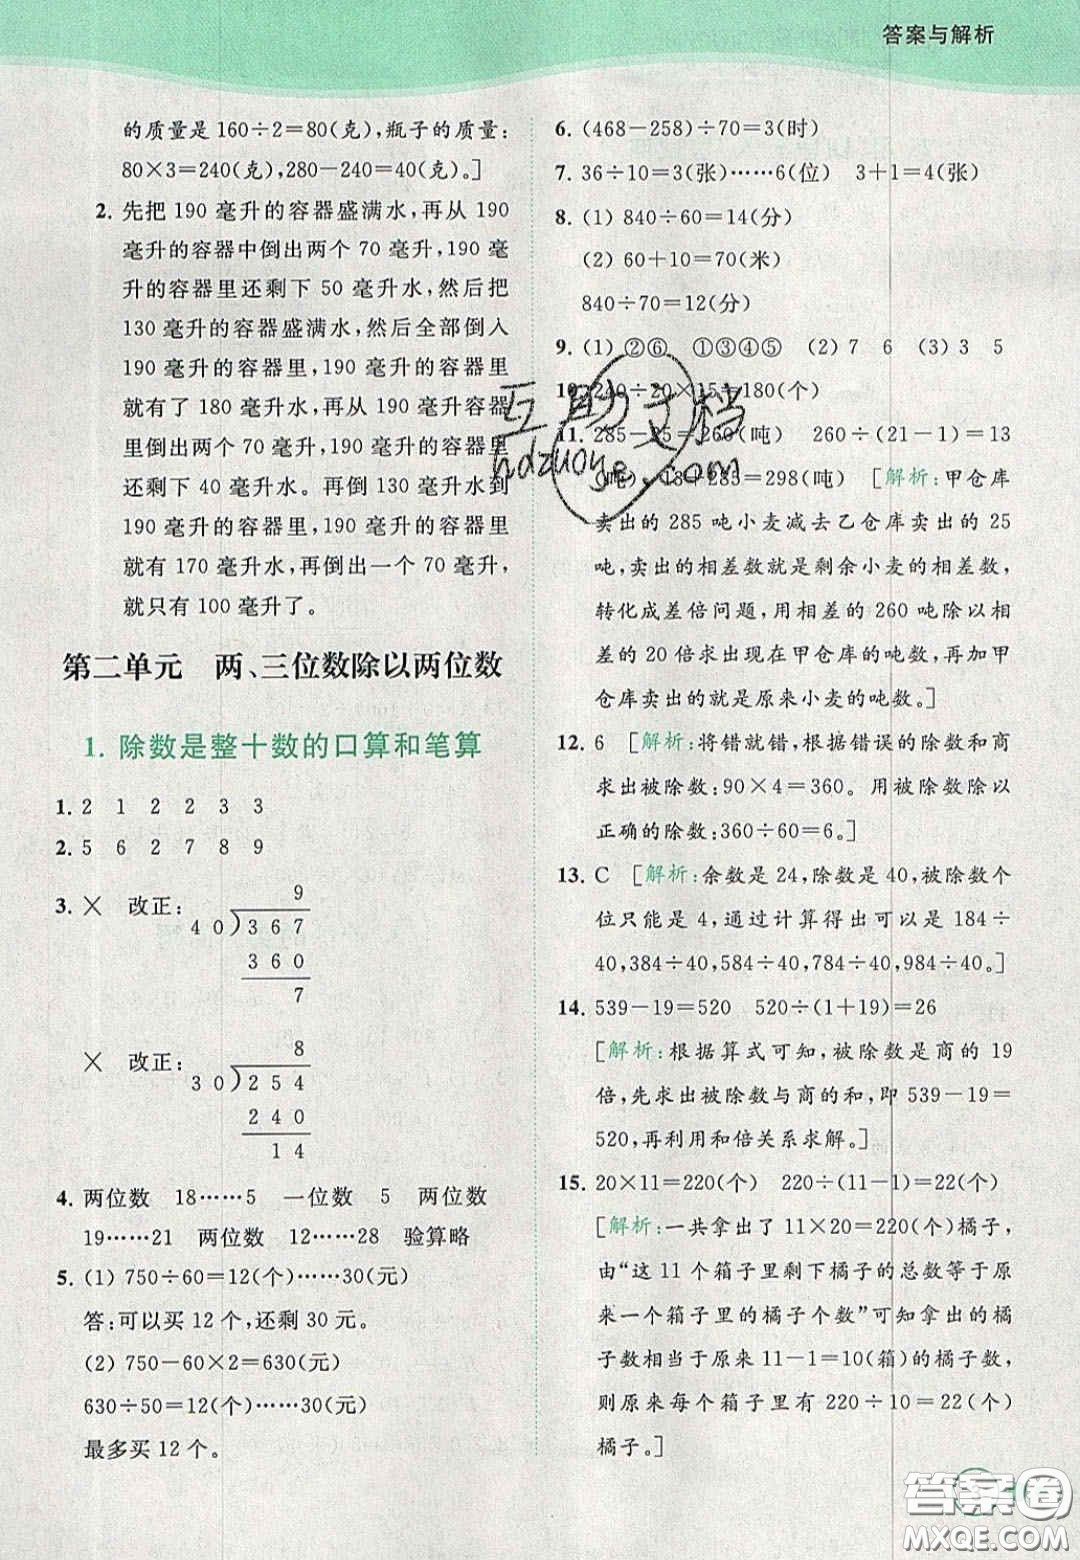 答案与解析
的质量是160÷2=80(克),瓶子的质量:
80×3=240(克),280-240=40(克)。]
2. 先把 190 毫升的容器盛满水,再从 190
毫升的容器中倒出两个 70 毫升,190 毫
升的容器里还剩下 50 毫升水,然后把
130 毫升的容器盛满水,然后全部倒入
190 毫升的容器里,190 毫升的容器里
就有了 180 毫升水,再从 190 毫升容器
里倒出两个 70 毫升,190 毫升的容器里
还剩下 40 毫升水。再倒 130 毫升水到
190 毫升的容器里,190 毫升的容器里
就有 170 毫升水,再倒出一个 70 毫升,
就只有 100 毫升了。
第二单元 两、三位数除以两位数
1. 除数是整十数的口算和笔算
1. 2 1 2 2 3 3
2. 5 6 2 7 8 9
3. × 改正:
9
40)367
360
7
× 改正:
8
30)254
240
14
4. 两位数 18……5 一位数 5 两位数
19……21 两位数 12……28 验算略
5. (1) 750÷60=12(个)……30(元)
答:可以买 12 个,还剩 30 元。
(2) 750-60×2=630(元)
630÷50=12(个)……30(元)
最多买 12 个。
6. (468-258)÷70=3(时)
7. 36÷10=3(张)……6(位) 3+1=4(张)
8. (1) 840÷60=14(分)
(2) 60+10=70(米)
840÷70=12(分)
9. (1) ②⑥ ①③④⑤ (2) 7 6 (3) 3 5
10. 240÷20×15=180(个)
11. 285-25=260(吨) 260÷(21-1)=13
(吨) 13+285=298(吨) [解析:甲仓库
卖出的 285 吨小麦减去乙仓库卖出的 25
吨,卖出的相差数就是剩余小麦的相差数,
转化成差倍问题,用相差的 260 吨除以相
差的 20 倍求出现在甲仓库的吨数,再加甲
仓库卖出的就是原来小麦的吨数。]
12. 6 [解析:将错就错,根据错误的除数和商
求出被除数:90×4=360。用被除数除以
正确的除数:360÷60=6。]
13. C [解析:余数是 24,除数是 40,被除数个
位只能是 4,通过计算得出可以是 184÷
40,384÷40,584÷40,784÷40,984÷40。]
14. 539-19=520 520÷(1+19)=26
[解析:根据算式可知,被除数是商的 19
倍,先求出被除数与商的和,即 539-19=
520,再利用和倍关系求解。]
15. 20×11=220(个) 220÷(11-1)=22(个)
[解析:一共拿出了 11×20=220(个)橘子,
由“这 11 个箱子里剩下橘子的总数等于原
来一个箱子里的橘子个数”可知拿出的橘
子数相当于原来 11-1=10(箱)的橘子数,
则原来每个箱子里有 220÷10=22(个)
橘子。]
互助文档
hdzuoye.com
答案圈
MXQE.COM